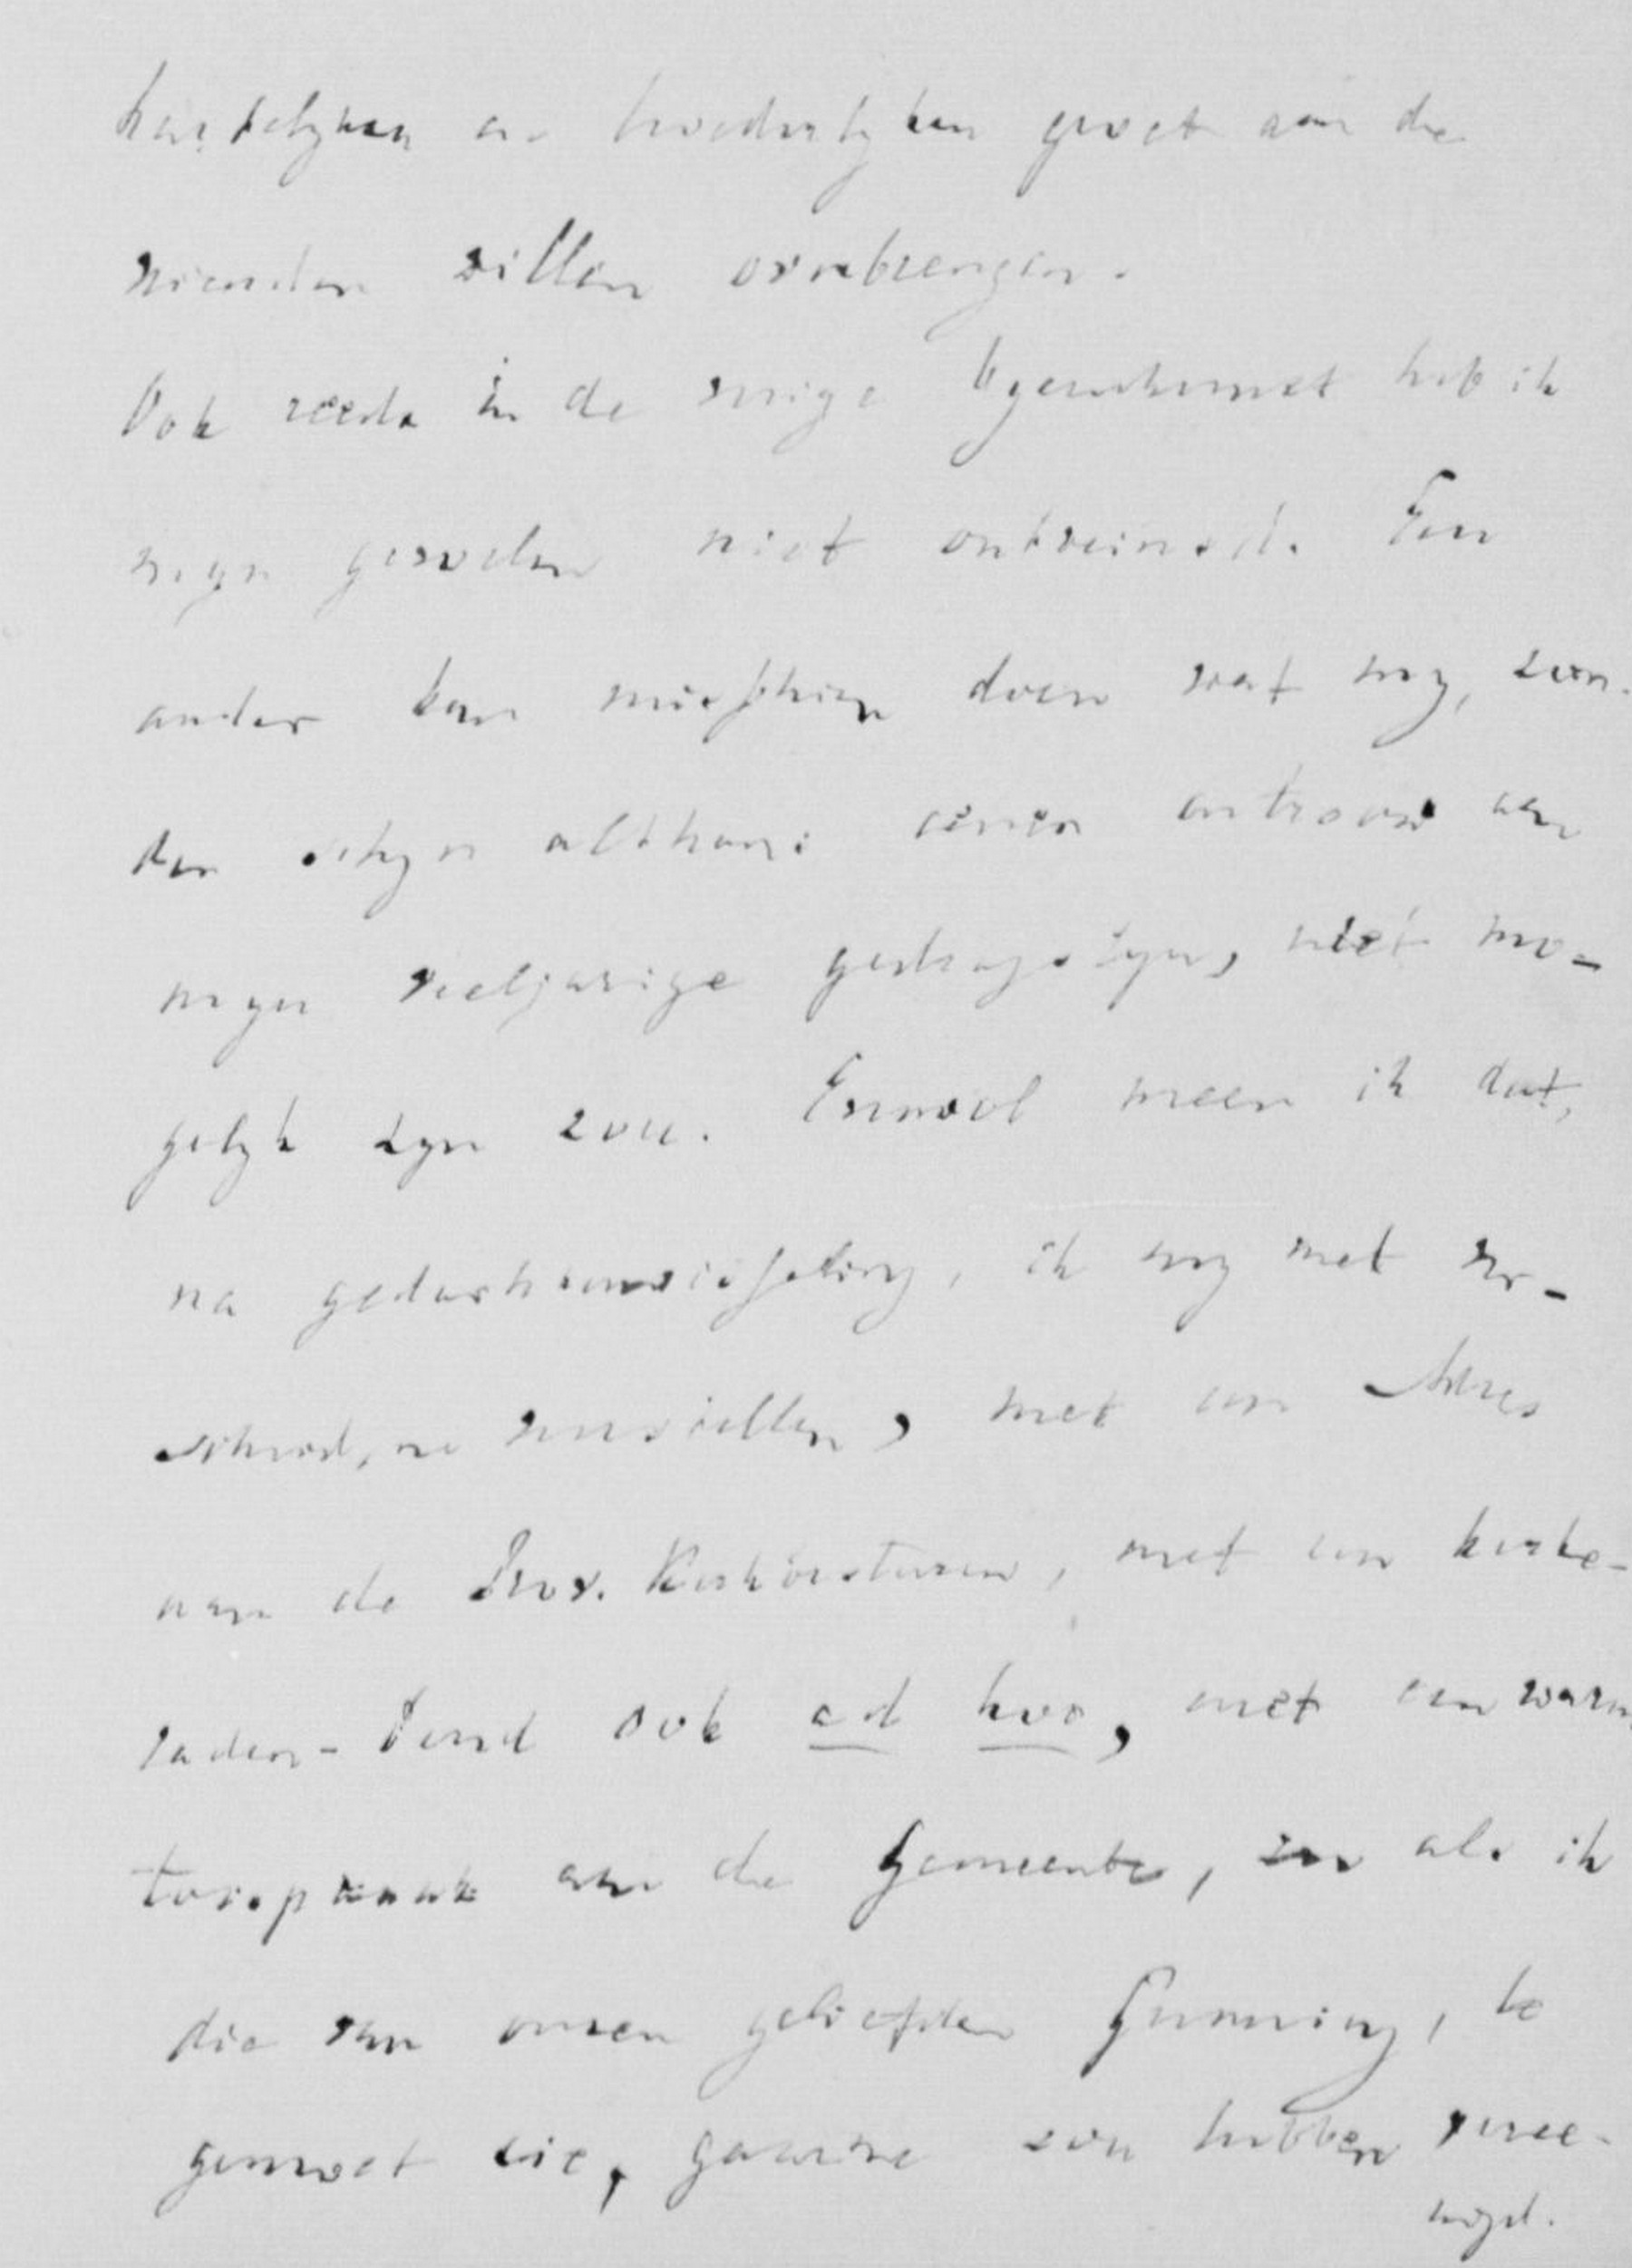 hartelyken en broederlyken groet aan de
vrienden willen overbrengen.
Ook reeds in de vorige byeenkomst heb ik
myn gevoelen niet ontveinsd. Een
ander kan misschien doen wat my, zon-
der schyn althans eener ontrouw aan
myn veeljarige gedragslyn, niet mo-
gelyk zyn zou. Evenwel meen ik dat,
na gedachtenwisseling, ik my met ver-
scheidene voorstellen, met een Adres
aan de Prov. Kerkbesturen, met een kerke-
raden-Bond ook ad hoc, met een warme
toespraak aan de Gemeente, als ik
die van onzen geliefden Gunning, te
gemoet zie, gaarne zou hebben veree-
nigd.